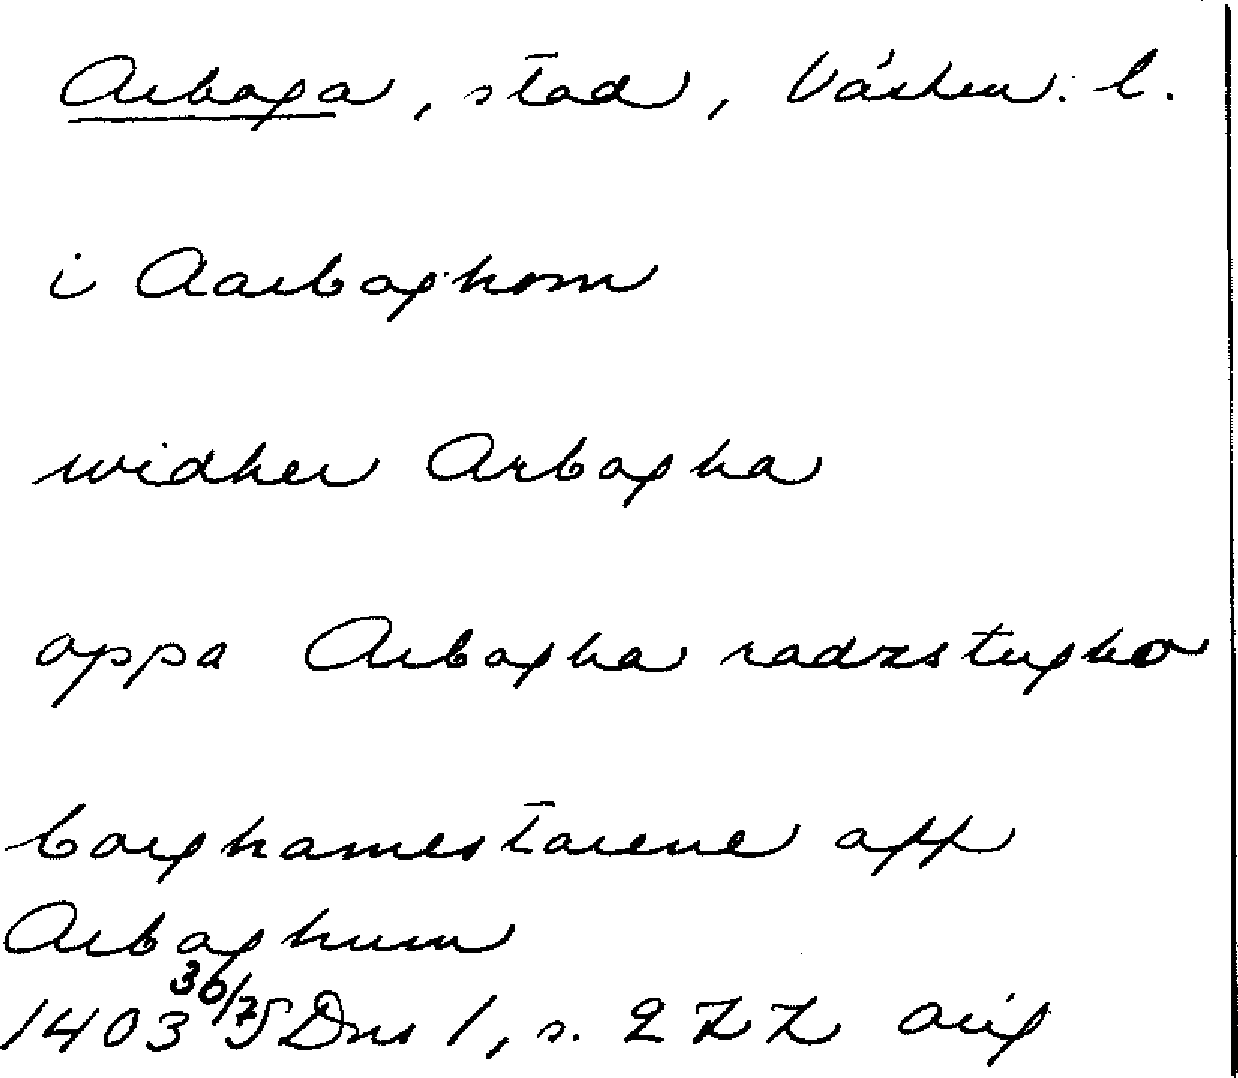 Arboga, stad, Västm. l.
i Aarboghom
widher Arbogha
oppa Arbogha radzstugho
borghamestarene aff
Arboghum
1403 30/7 SDns 1, s. 277 orig